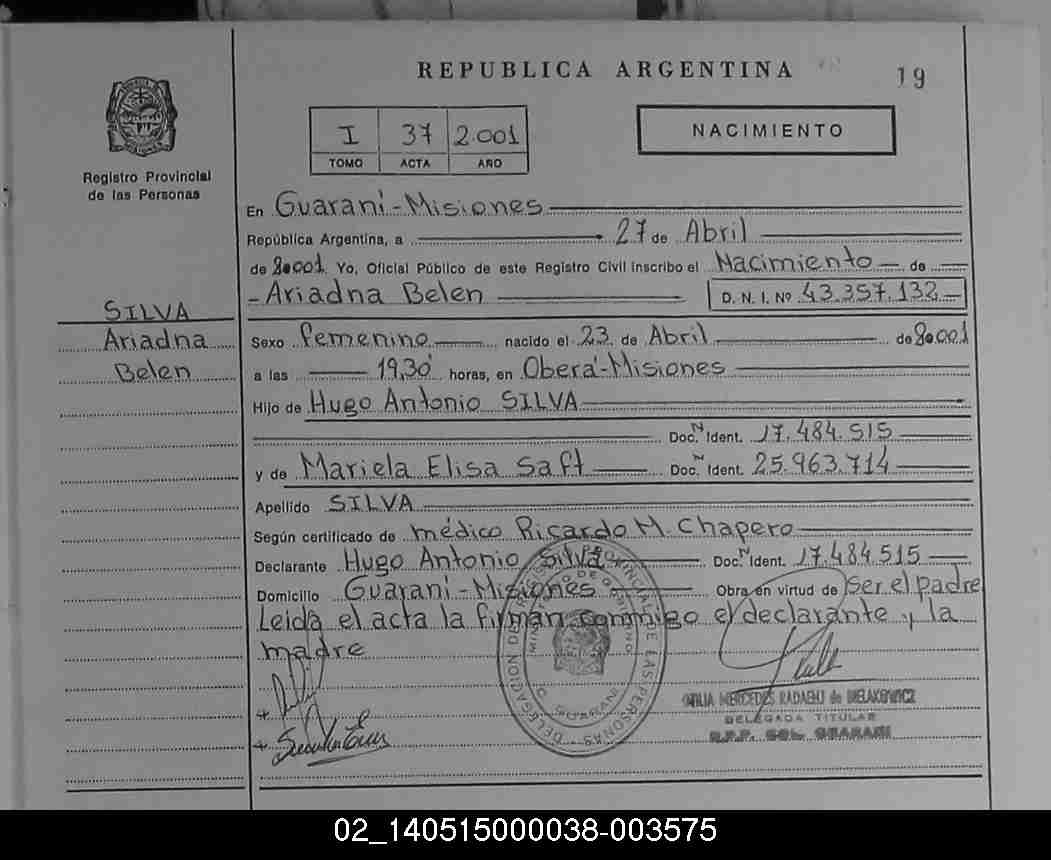 REPUBLICA ARGENTINA
19
I 37 2.001
TOMO ACTA AÑO
NACIMIENTO
Registro Provincial
de las Personas
En Guaraní-Misiones
República Argentina, a 27 de Abril
de 2.001 Yo, Oficial Público de este Registro Civil inscribo el Nacimiento de
-Ariadna Belen D. N. I. Nº 43.357.132
SILVA
Ariadna
Belen
Sexo femenino nacido el 23 de Abril de 2.001
a las 19,30 horas, en Oberá-Misiones
Hijo de Hugo Antonio SILVA
Doc. N Ident. 17.484.515
y de Mariela Elisa Saft Doc. N Ident. 25.963.714
Apellido SILVA
Según certificado de médico Ricardo M. Chapero
Declarante Hugo Antonio Silva Doc. N Ident. 17.484.515
Domicilio Guaraní-Misiones Obra en virtud de Ser el padre
Leída el acta la firman conmigo el declarante y la
madre
DELEGACION DE REGISTRO PROVINCIAL DE LAS PERSONAS
MINISTERIO DE GOBIERNO
GUARANI
MERCEDES RADAELLI de BIELAKOWICZ
DELEGADA TITULAR
R.P.P. COL. GUARANI
02_140515000038-003575